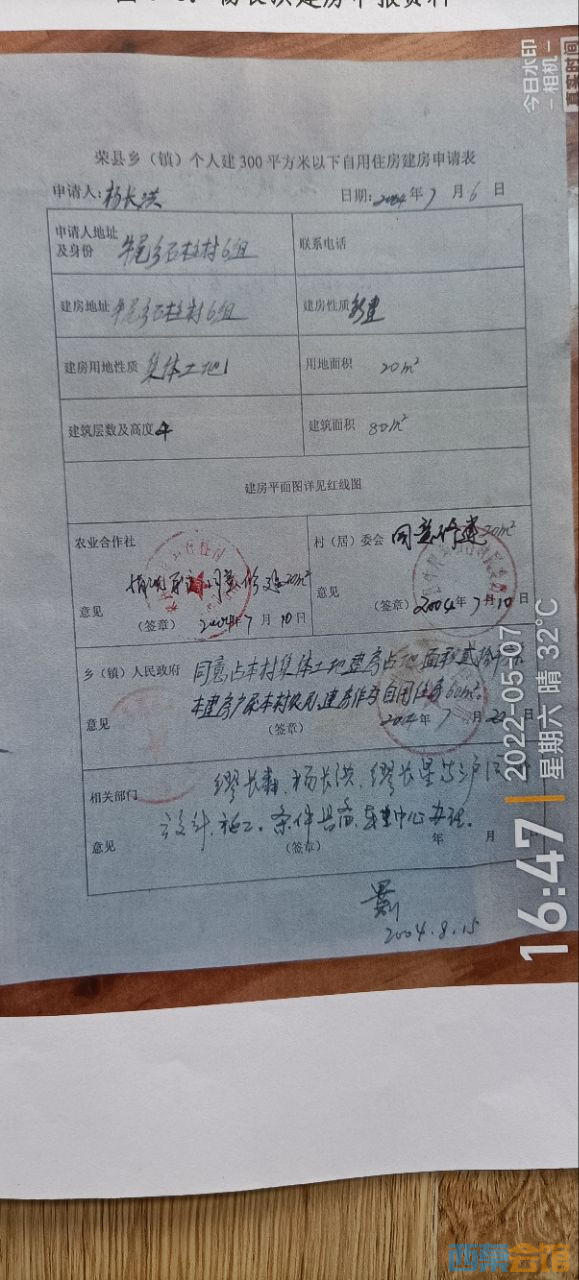 荣县乡（镇）个人建300平方米以下自用住房建房申请表
申请人：杨长洪 日期：2004年7月6日
申请人地址及身份 牛尾乡石柱村6组 联系电话
建房地址 牛尾乡石柱村6组 建房性质 新建
建房用地性质 集体土地 用地面积 20m²
建筑层数及高度 4 建筑面积 80m²
建房平面图详见红线图
农业合作社 村（居）委会 同意修建20m²
同意修建20m²
意见 意见
（签章） 2004年7月10日 （签章） 2004年7月10日
乡（镇）人民政府 同意占本村集体土地建房占地面积贰拾
本建房户系本村农户，建房作为自用住房60m²。
意见 （签章） 2004年7月22日
相关部门 缪长森、杨长洪、缪长星等三户
设计、施工。条件具备，中心办理。
意见 （签章） 年 月
2004.8.15
今日水印
-相机-
真实时间
16:47
2022-05-07
星期六 晴 32°C
西蜀会馆